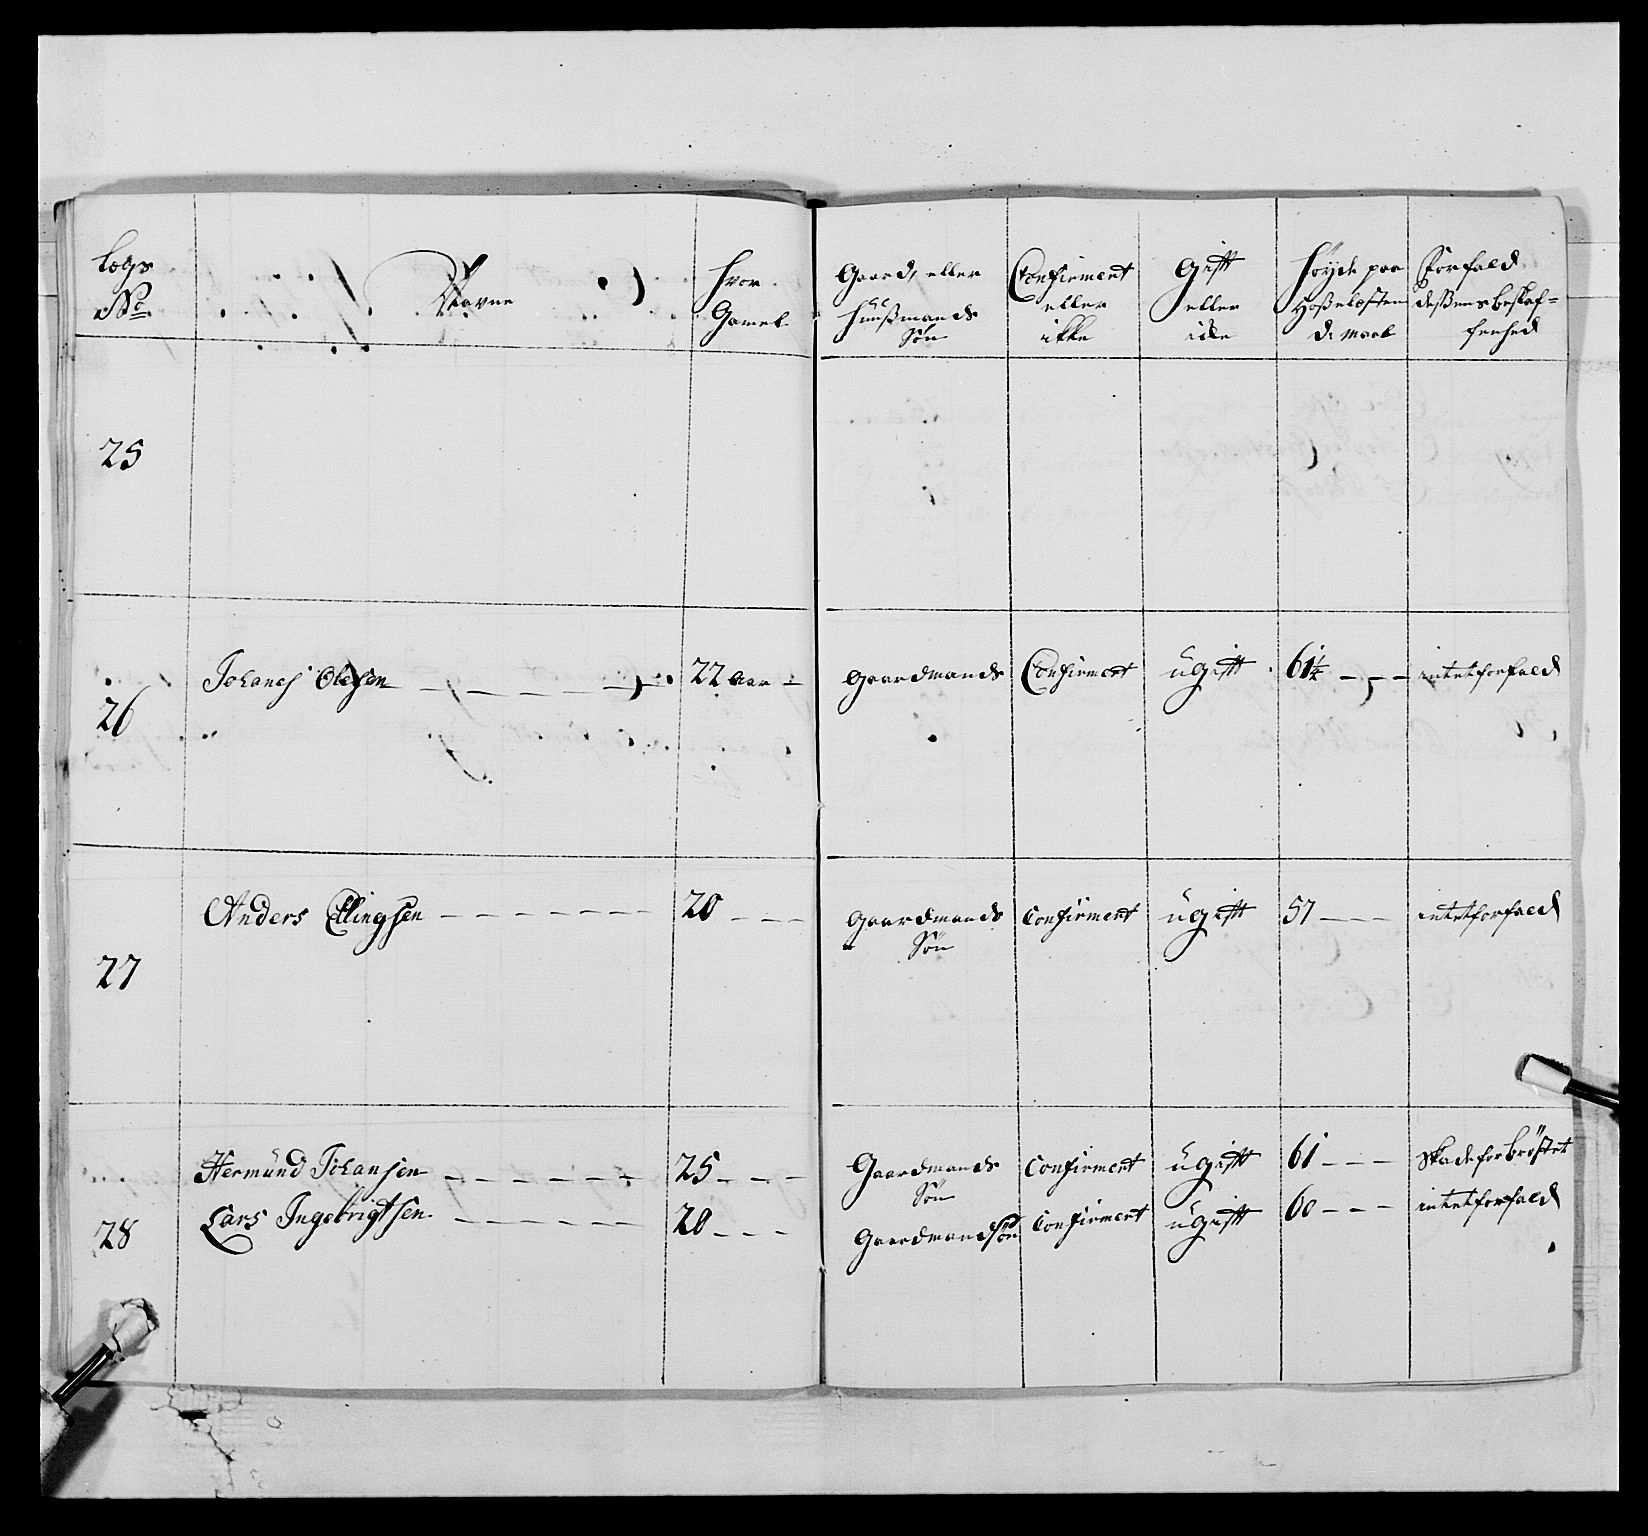 Legs No. | Navne | Hvor Gamel | Gaard, eller Huusmands Søn | Confirmert eller ikke | Gift eller icke | Høyde paa Hoselæsten d. maal | Forfald dessens beskaffenhed
25
26 | Johanes Olesen | 22 aar | Gaardmands | Confirmert | ugift | 61¼ | intet forfald
27 | Anders Ellingsen | 20 | Gaardmands Søn | Confirmert | ugift | 57 | intet forfald
28 | Hermund Johansen | 25 | Gaardmands Søn | Confirmert | ugift | 61 | skade for brøstet
Lars Ingebrigtsen | 20 | Gaardmandsøn | Confirmert | ugift | 60 | intet forfald